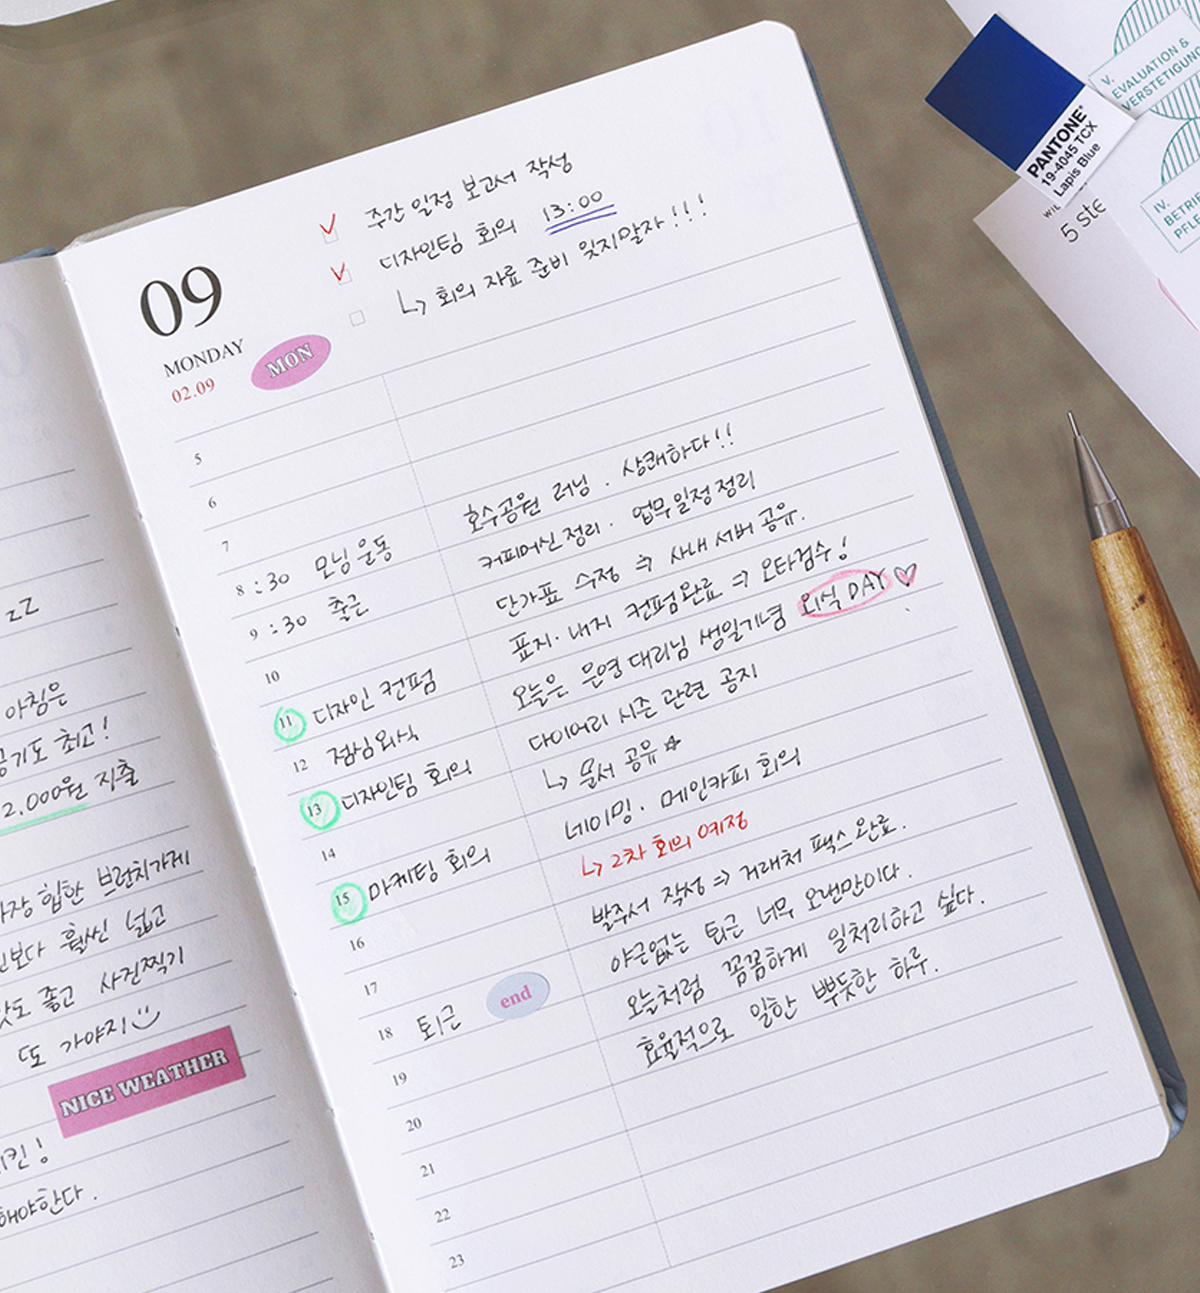 zZ
아침은
공기도 최고!
2,000원 지출
힙한 브런치가게
보다 훨씬 넓고
맛도 좋고 사진찍기
또 가야지
NICE WEATHER
치킨!
해야한다.
09
MONDAY
02.09
MON
주간 일정 보고서 작성
디자인팀 회의 13:00
↳ 회의 자료 준비 잊지말자!!!
5
6
7
8 :30 모닝 운동
9 :30 출근
10
11 디자인 컨펌
12 점심외식
13 디자인팀 회의
14
15 마케팅 회의
16
17
18 퇴근 end
19
20
21
22
23
호수공원 러닝. 상쾌하다!!
커피머신 정리. 업무일정 정리
단가표 수정 ⇒ 사내 서버 공유.
표지·내지 컨펌완료 ⇒ 오타검수!
오늘은 문영 대리님 생일기념 외식 DAY ♡
다이어리 시즌 관련 공지
↳ 문서 공유 ☆
네이밍. 메인카피 회의
↳ 2차 회의 예정
발주서 작성 ⇒ 거래처 팩스완료.
야근없는 퇴근 너무 오랜만이다.
오늘처럼 꼼꼼하게 일처리하고 싶다.
효율적으로 일한 뿌듯한 하루.
V.
EVALUATION &
VERSTETIGUNG
PANTONE®
19-4045 TCX
Lapis Blue
IV.
5 ste